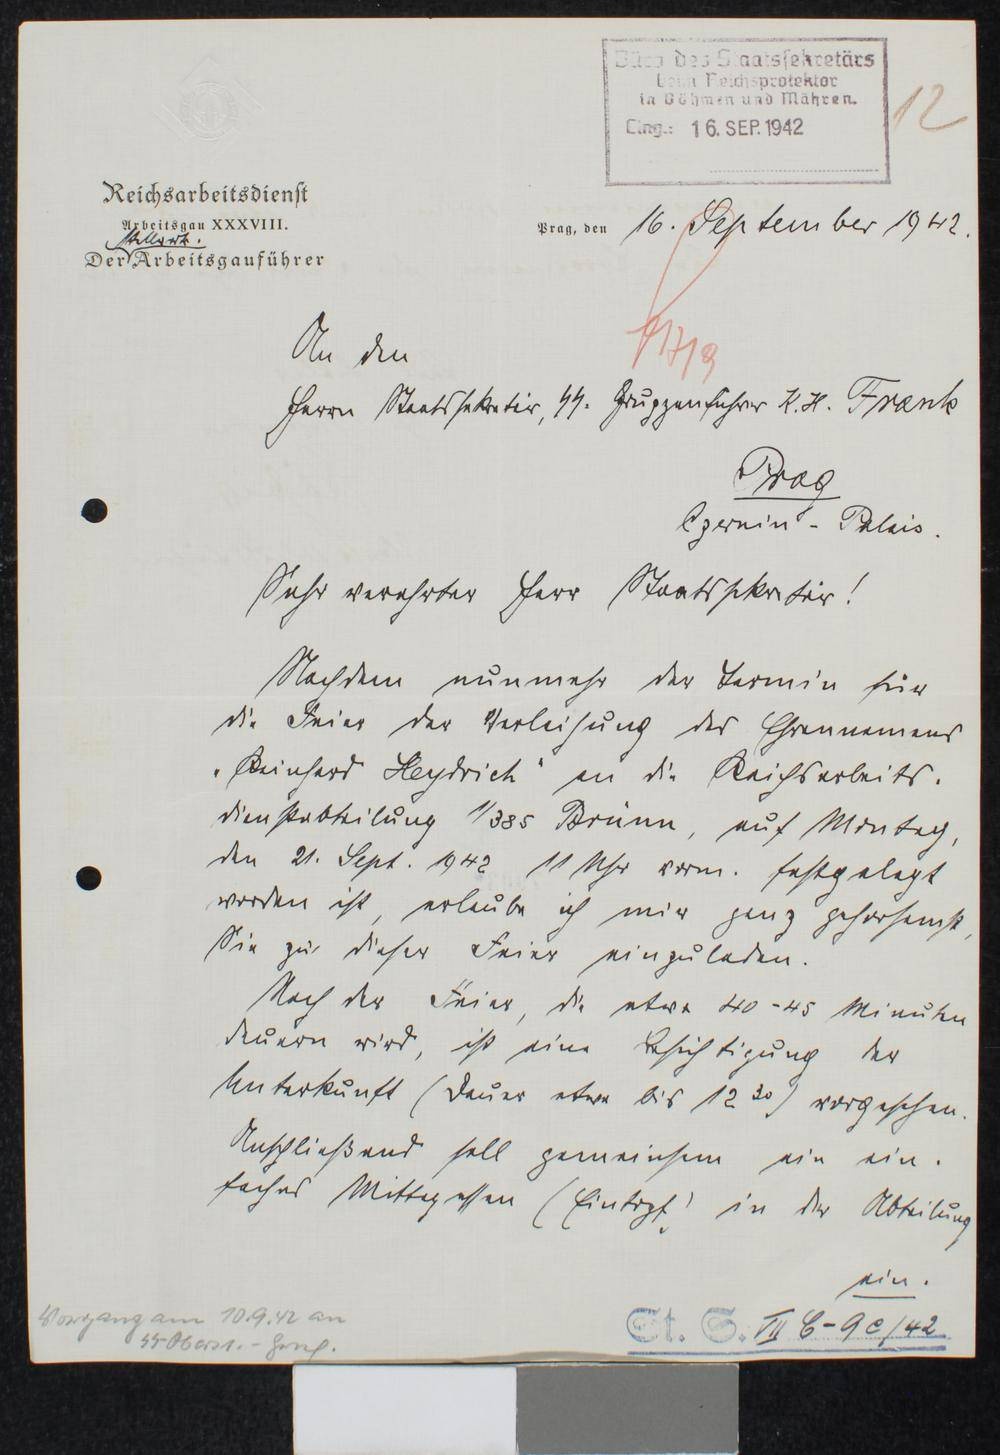 Büro des Staatssekretärs
beim Reichsprotektor
in Böhmen und Mähren.
Eing.: 16. SEP. 1942
12
Reichsarbeitsdienst
Arbeitsgau XXXVIII.
stellvertr.
Der Arbeitsgauführer
Prag, den 16. September 1942.
17/9
An den
Herrn Staatssekretär, SS-Gruppenführer K.H. Frank
Prag
Czernin-Palais.
Sehr verehrter Herr Staatssekretär!
Nachdem nunmehr der Termin für
die Feier der Verleihung des Ehrennamens
„Reinhard Heydrich" an die Reichsarbeits-
dienstabteilung 1/385 Brünn, auf Montag,
den 21. Sept. 1942 11 Uhr vorm. festgelegt
worden ist, erlaube ich mir ganz gehorsamst,
Sie zu dieser Feier einzuladen.
Nach der Feier, die etwa 40-45 Minuten
dauern wird, ist eine Besichtigung der
Unterkunft (Dauer etwa bis 12 30) vorgesehen.
Anschließend soll gemeinsam ein ein-
faches Mittagessen (Eintopf) in der Abteilung
ein-
Vorgang am 10.9.42 an
St. S. VII C-9e/42